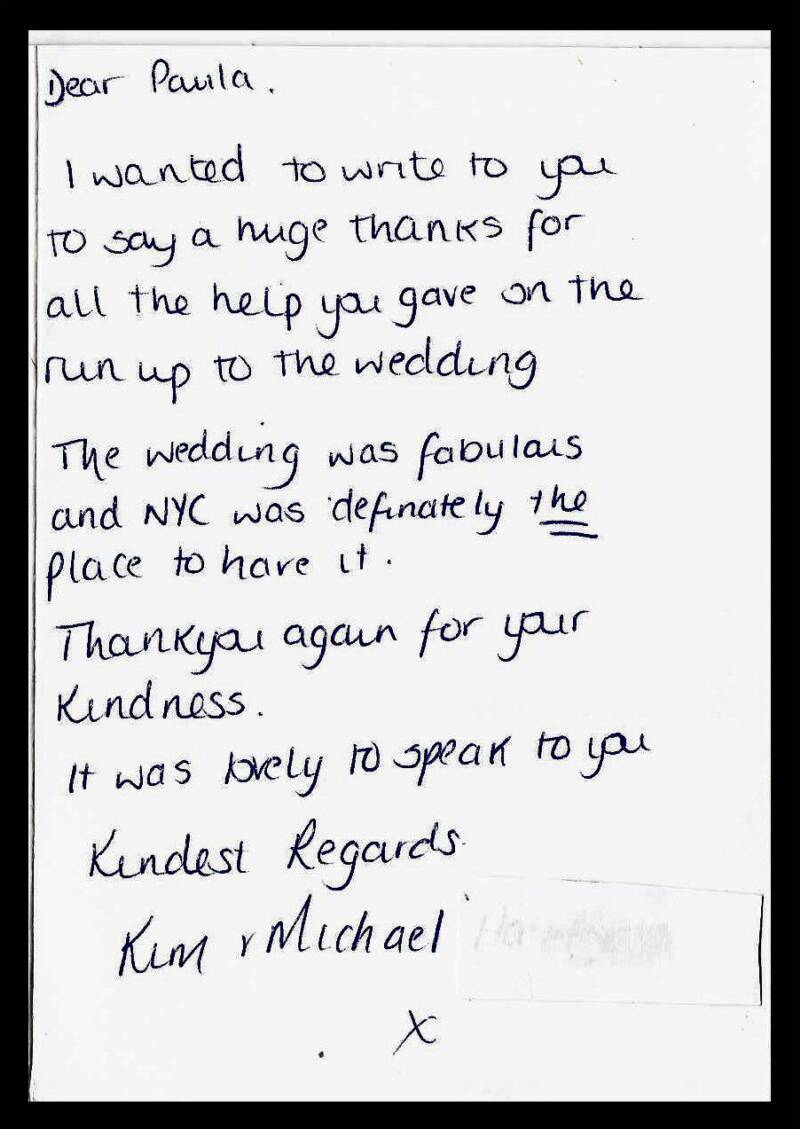 Dear Paula.
I wanted to write to you
to say a huge thanks for
all the help you gave on the
run up to the wedding
The wedding was fabulous
and NYC was definately the
place to have it.
Thankyou again for your
Kindness.
It was lovely to speak to you
Kindest Regards.
Kim & Michael
X